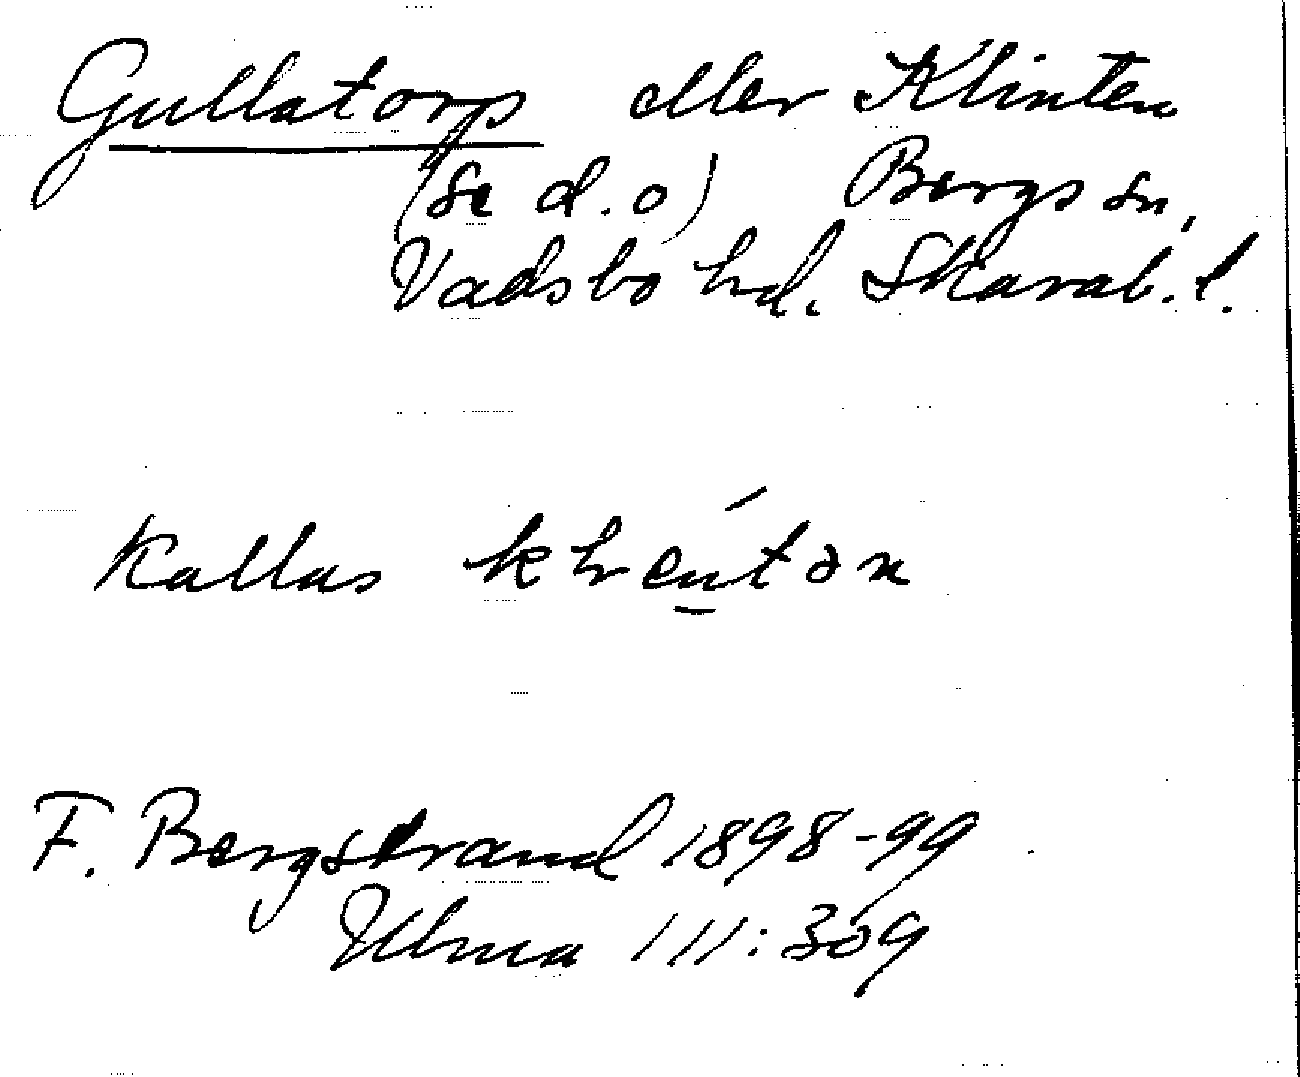 Gullatorp eller Klinten
(se d.o) Bergs sn,
Vadsbo hd. Skarab. l.
Kallas
F. Bergstrand 1898-99
Ulma 111:309